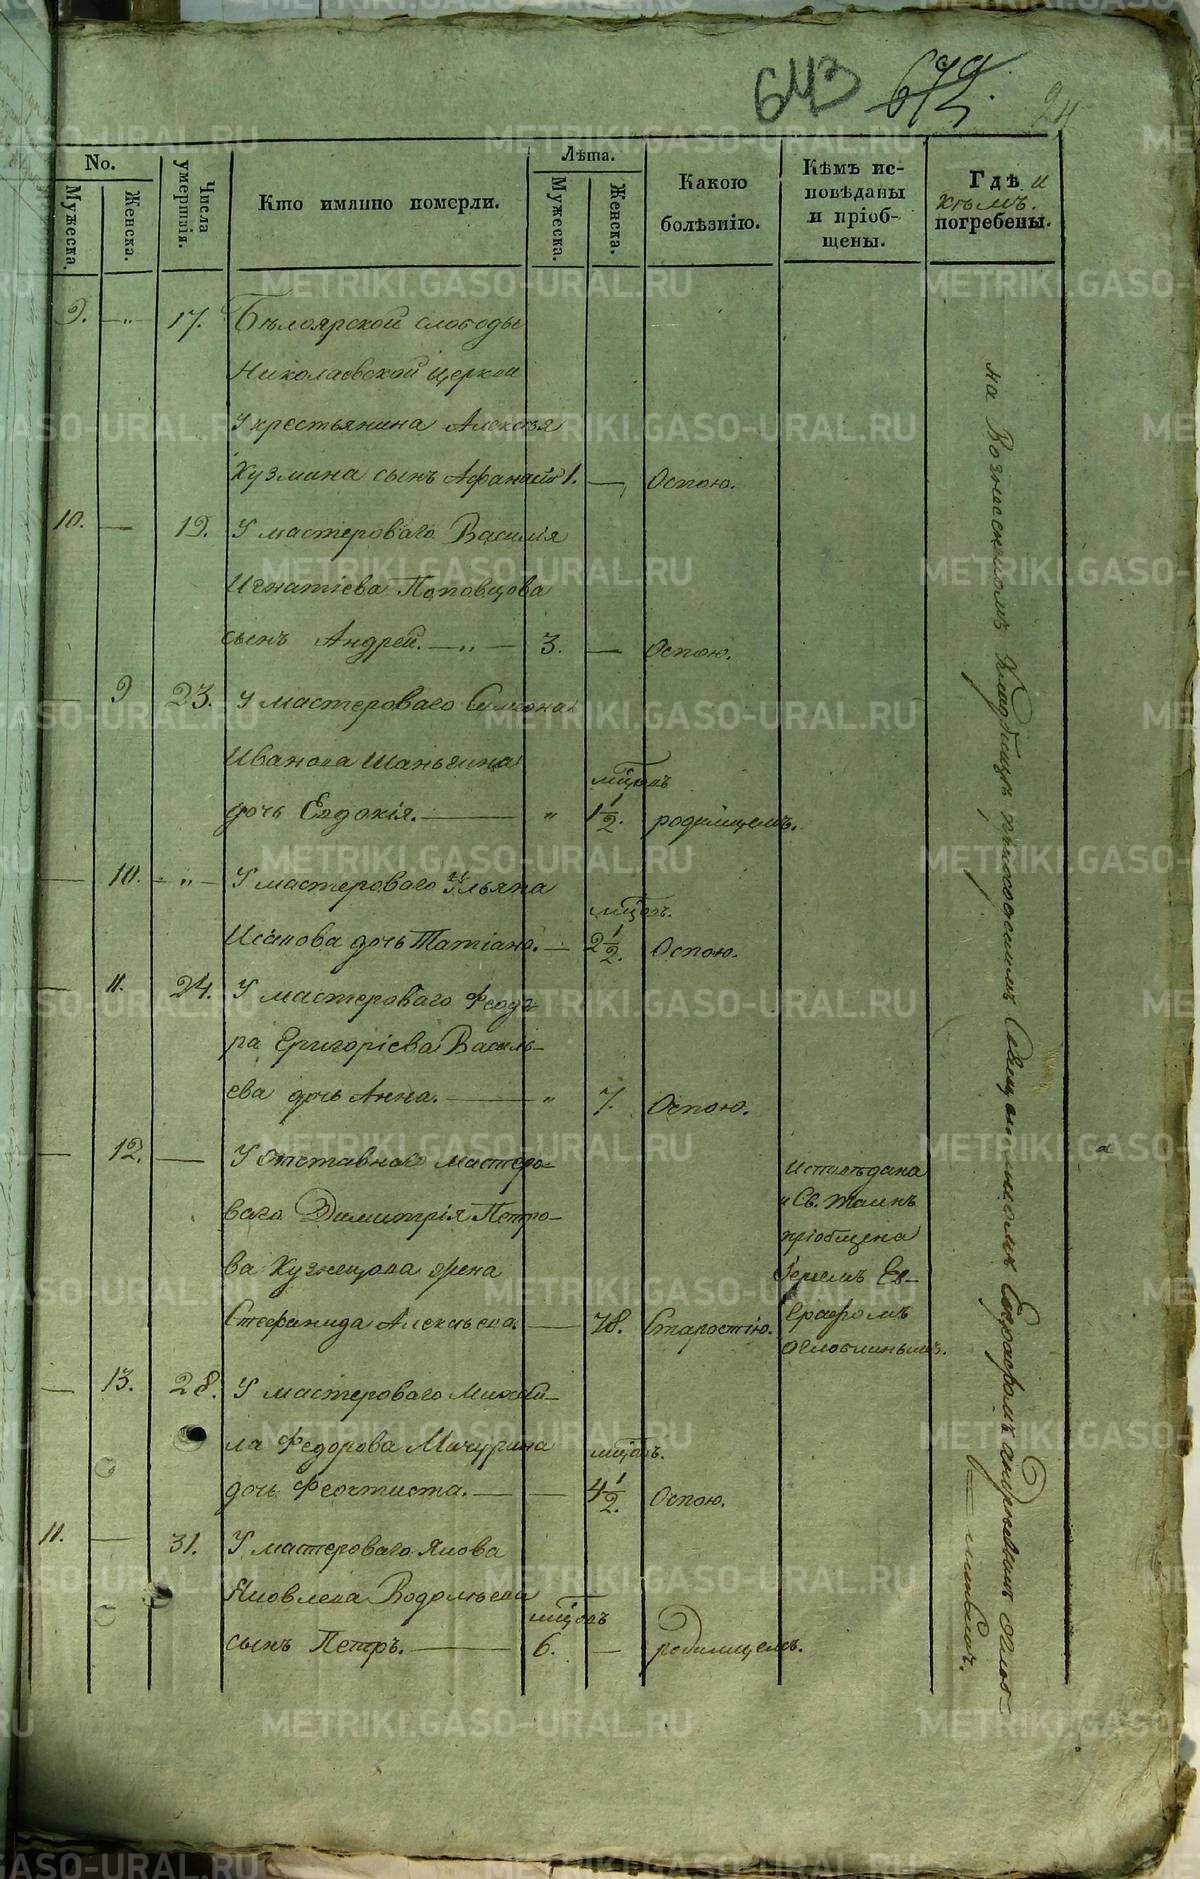 643 679
24
No.
Мужеска.
Женска.
Числа умершія.
Кто имянно померли.
Лѣта.
Мужеска.
Женска.
Какою
болѣзнію.
Кѣмъ ис-
повѣданы
и пріоб-
щены.
Гдѣ и
кѣмъ.
погребены.
9. — „ — 17. Бѣлоярской слободы
Николаевской церкви
У крестьянина Алексѣя
Кузмина сынъ Афанасій 1. — Оспою.
10. — 19. У мастероваго Василія
Игнатіева Поповцова
сынъ Андрей. — „ — 3. — Оспою.
— 9 23. У мастероваго Симеона
Иванова Шаньгина
мѣсяцовъ
дочь Евдокія. — „ 1 1/2. родимцемъ.
— 10. — „ — У мастероваго Ульяна
мѣсяцовъ.
Исакова дочь Татіана. — 2 1/2. Оспою.
— 11. 24. У мастероваго Феодо-
ра Григоріева Василь-
ева дочь Анна. — „ 7. Оспою.
— 12. — У отставнаго мастеро-
ваго Димитрія Петро-
ва Кузнецова жена
Стефанида Алексѣева. — 78. Старостію.
исповѣдана
и Св. Таинъ
пріобщена
Іереемъ Ев-
графомъ
Оглоблинымъ.
— 13. 28. У мастероваго Михаи-
ла Федорова Мичурина
дочь Феоктиста. — — 4 1/2. Оспою.
11. — 31. У мастероваго Якова
Яковлева Водолѣева
сынъ Петръ. — 6. — родимцемъ.
на Вознесенскомъ Кладбищѣ приходскимъ Священникомъ Евграфомъ Андреевымъ Оглоб-
METRIKI.GASO-URAL.RU